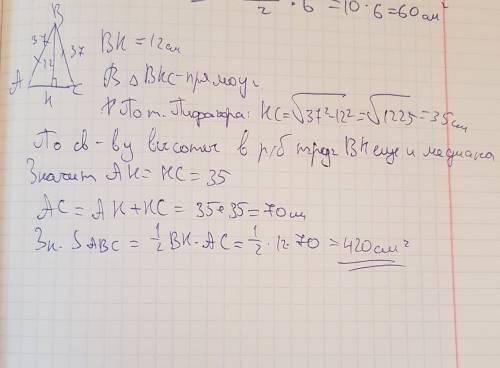 2 · 6 = 10 · 6 = 60 см²
B
37
37
12
A
H
C
BH = 12 см
В △ BHC - прямоуг
По т. Пифагора: HC = √37² - 12² = √1225 = 35 см
По св-ву высоты в р/б треуг BH еще и медиана
Значит AH = HC = 35
AC = AH + HC = 35 + 35 = 70 см
Зн. S ABC = 1/2 BH · AC = 1/2 · 12 · 70 = 420 см²